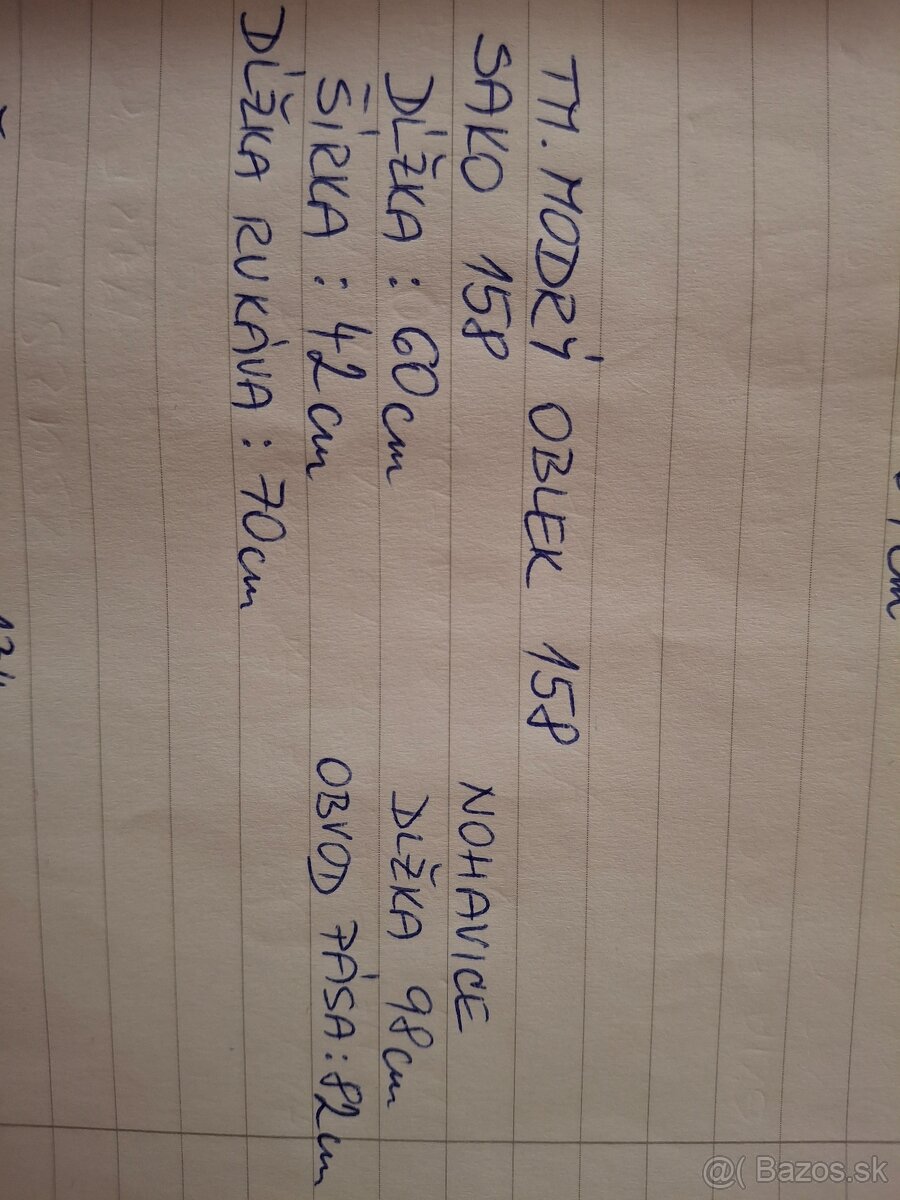 TM. MODRÝ OBLEK 158
SAKO 158
DĹŽKA : 60cm
ŠÍRKA : 42cm
DĹŽKA RUKÁVA : 70cm
NOHAVICE
DLŽKA 98cm
OBVOD PÁSA : 82cm
@( Bazos.sk